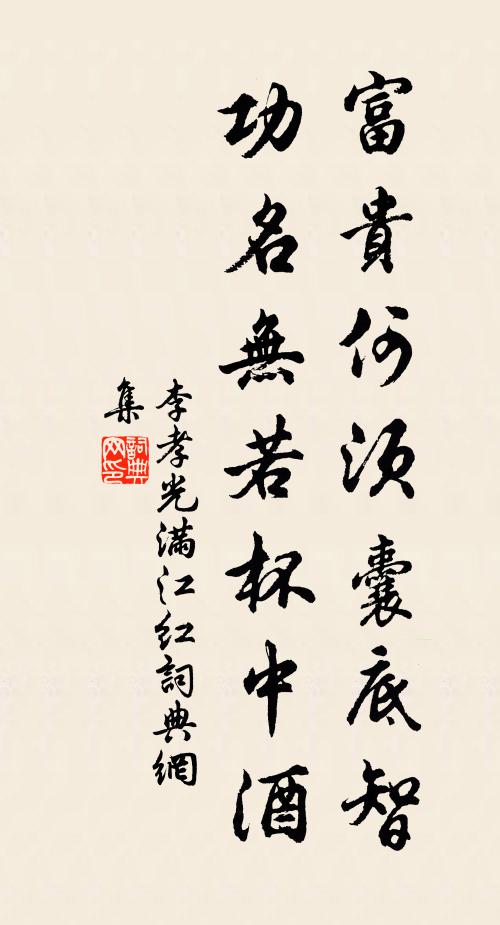 富貴何須囊底智
功名無若杯中酒
李孝光滿江紅詞典網
集
詞典
网印